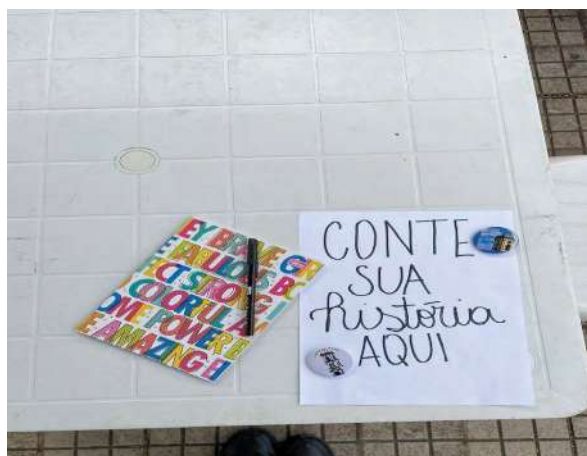 EY BRAVE GR
E FABULOUS BO
ECT STRONG I
COLORFUL A
OME POWER E
E AMAZING EI
CONTE
SUA
história
AQUI